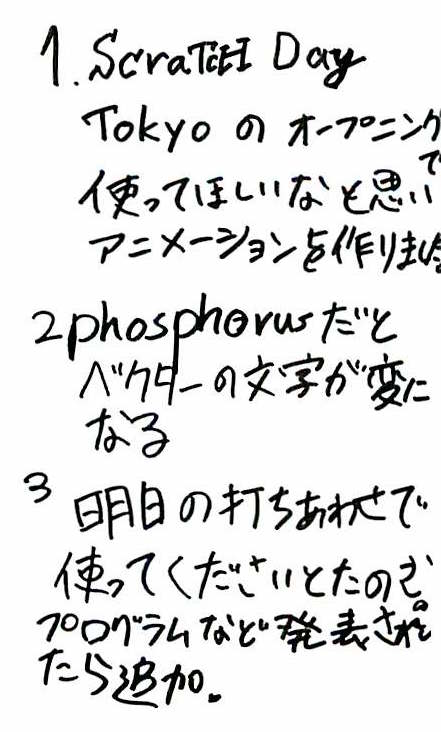 1. ScraTCH Day
Tokyo の オープニング
で
使ってほしいなと思い
アニメーションを作りました
2 phosphorus だと
ベクターの文字が変に
なる
3 明日の打ちあわせで
使ってくださいとたのむ
プログラムなど発表され
たら追加.